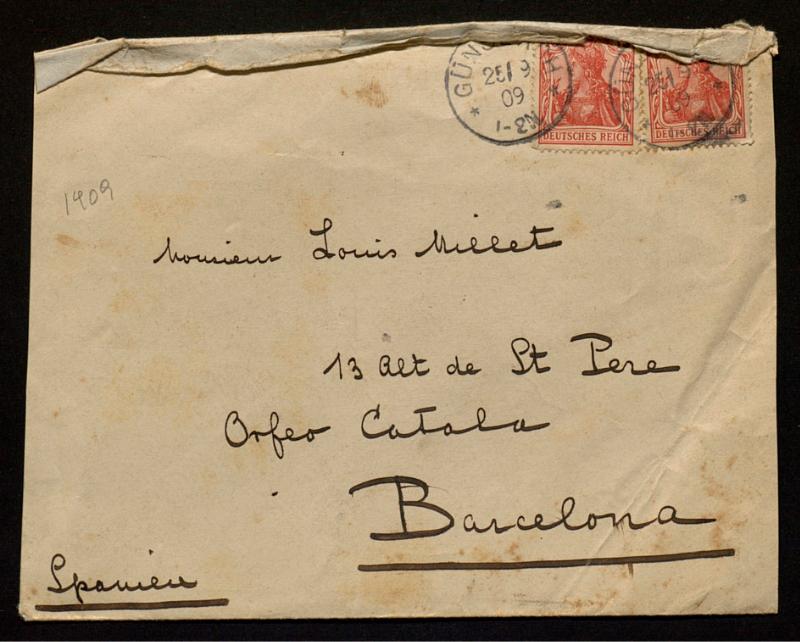 25/9
09
DEUTSCHES REICH
DEUTSCHES REICH
1909
Monsieur Louis Millet
13 Alt de St Pere
Orfeo Catala
Barcelona
Spanien